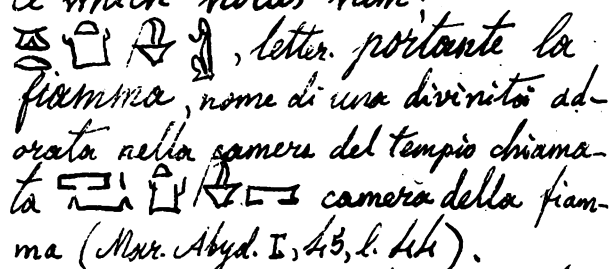 , letter. portante la
fiamma, nome di una divinità ad-
orata nella camera del tempio chiama-
ta camera della fiam-
ma (Mar. Abyd. I, 45, l. 44).